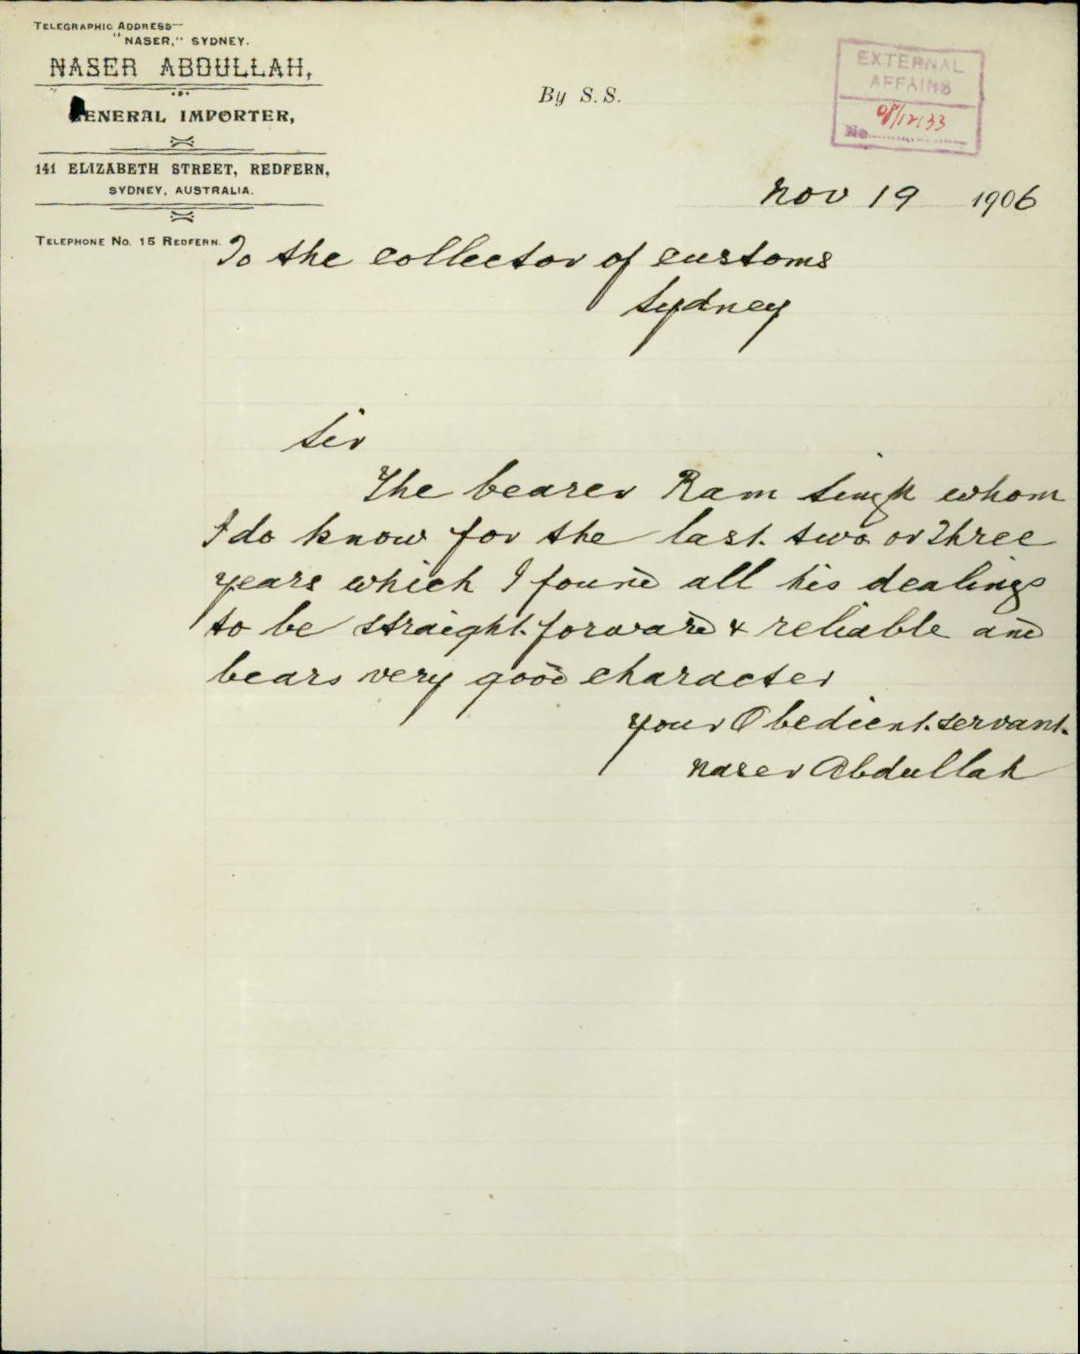 TELEGRAPHIC ADDRESS—
"NASER," SYDNEY.
NASER ABDULLAH,
GENERAL IMPORTER,
141 ELIZABETH STREET, REDFERN,
SYDNEY, AUSTRALIA.
TELEPHONE No. 15 REDFERN.
By S.S.
EXTERNAL
AFFAIRS
No. 08/12133
Nov 19 1906
To the collector of customs
Sydney
Sir
The bearer Ram Singh whom
I do know for the last two or three
years which I found all his dealings
to be straight forward & reliable and
bears very good character
your Obedient servant
Naser Abdullah